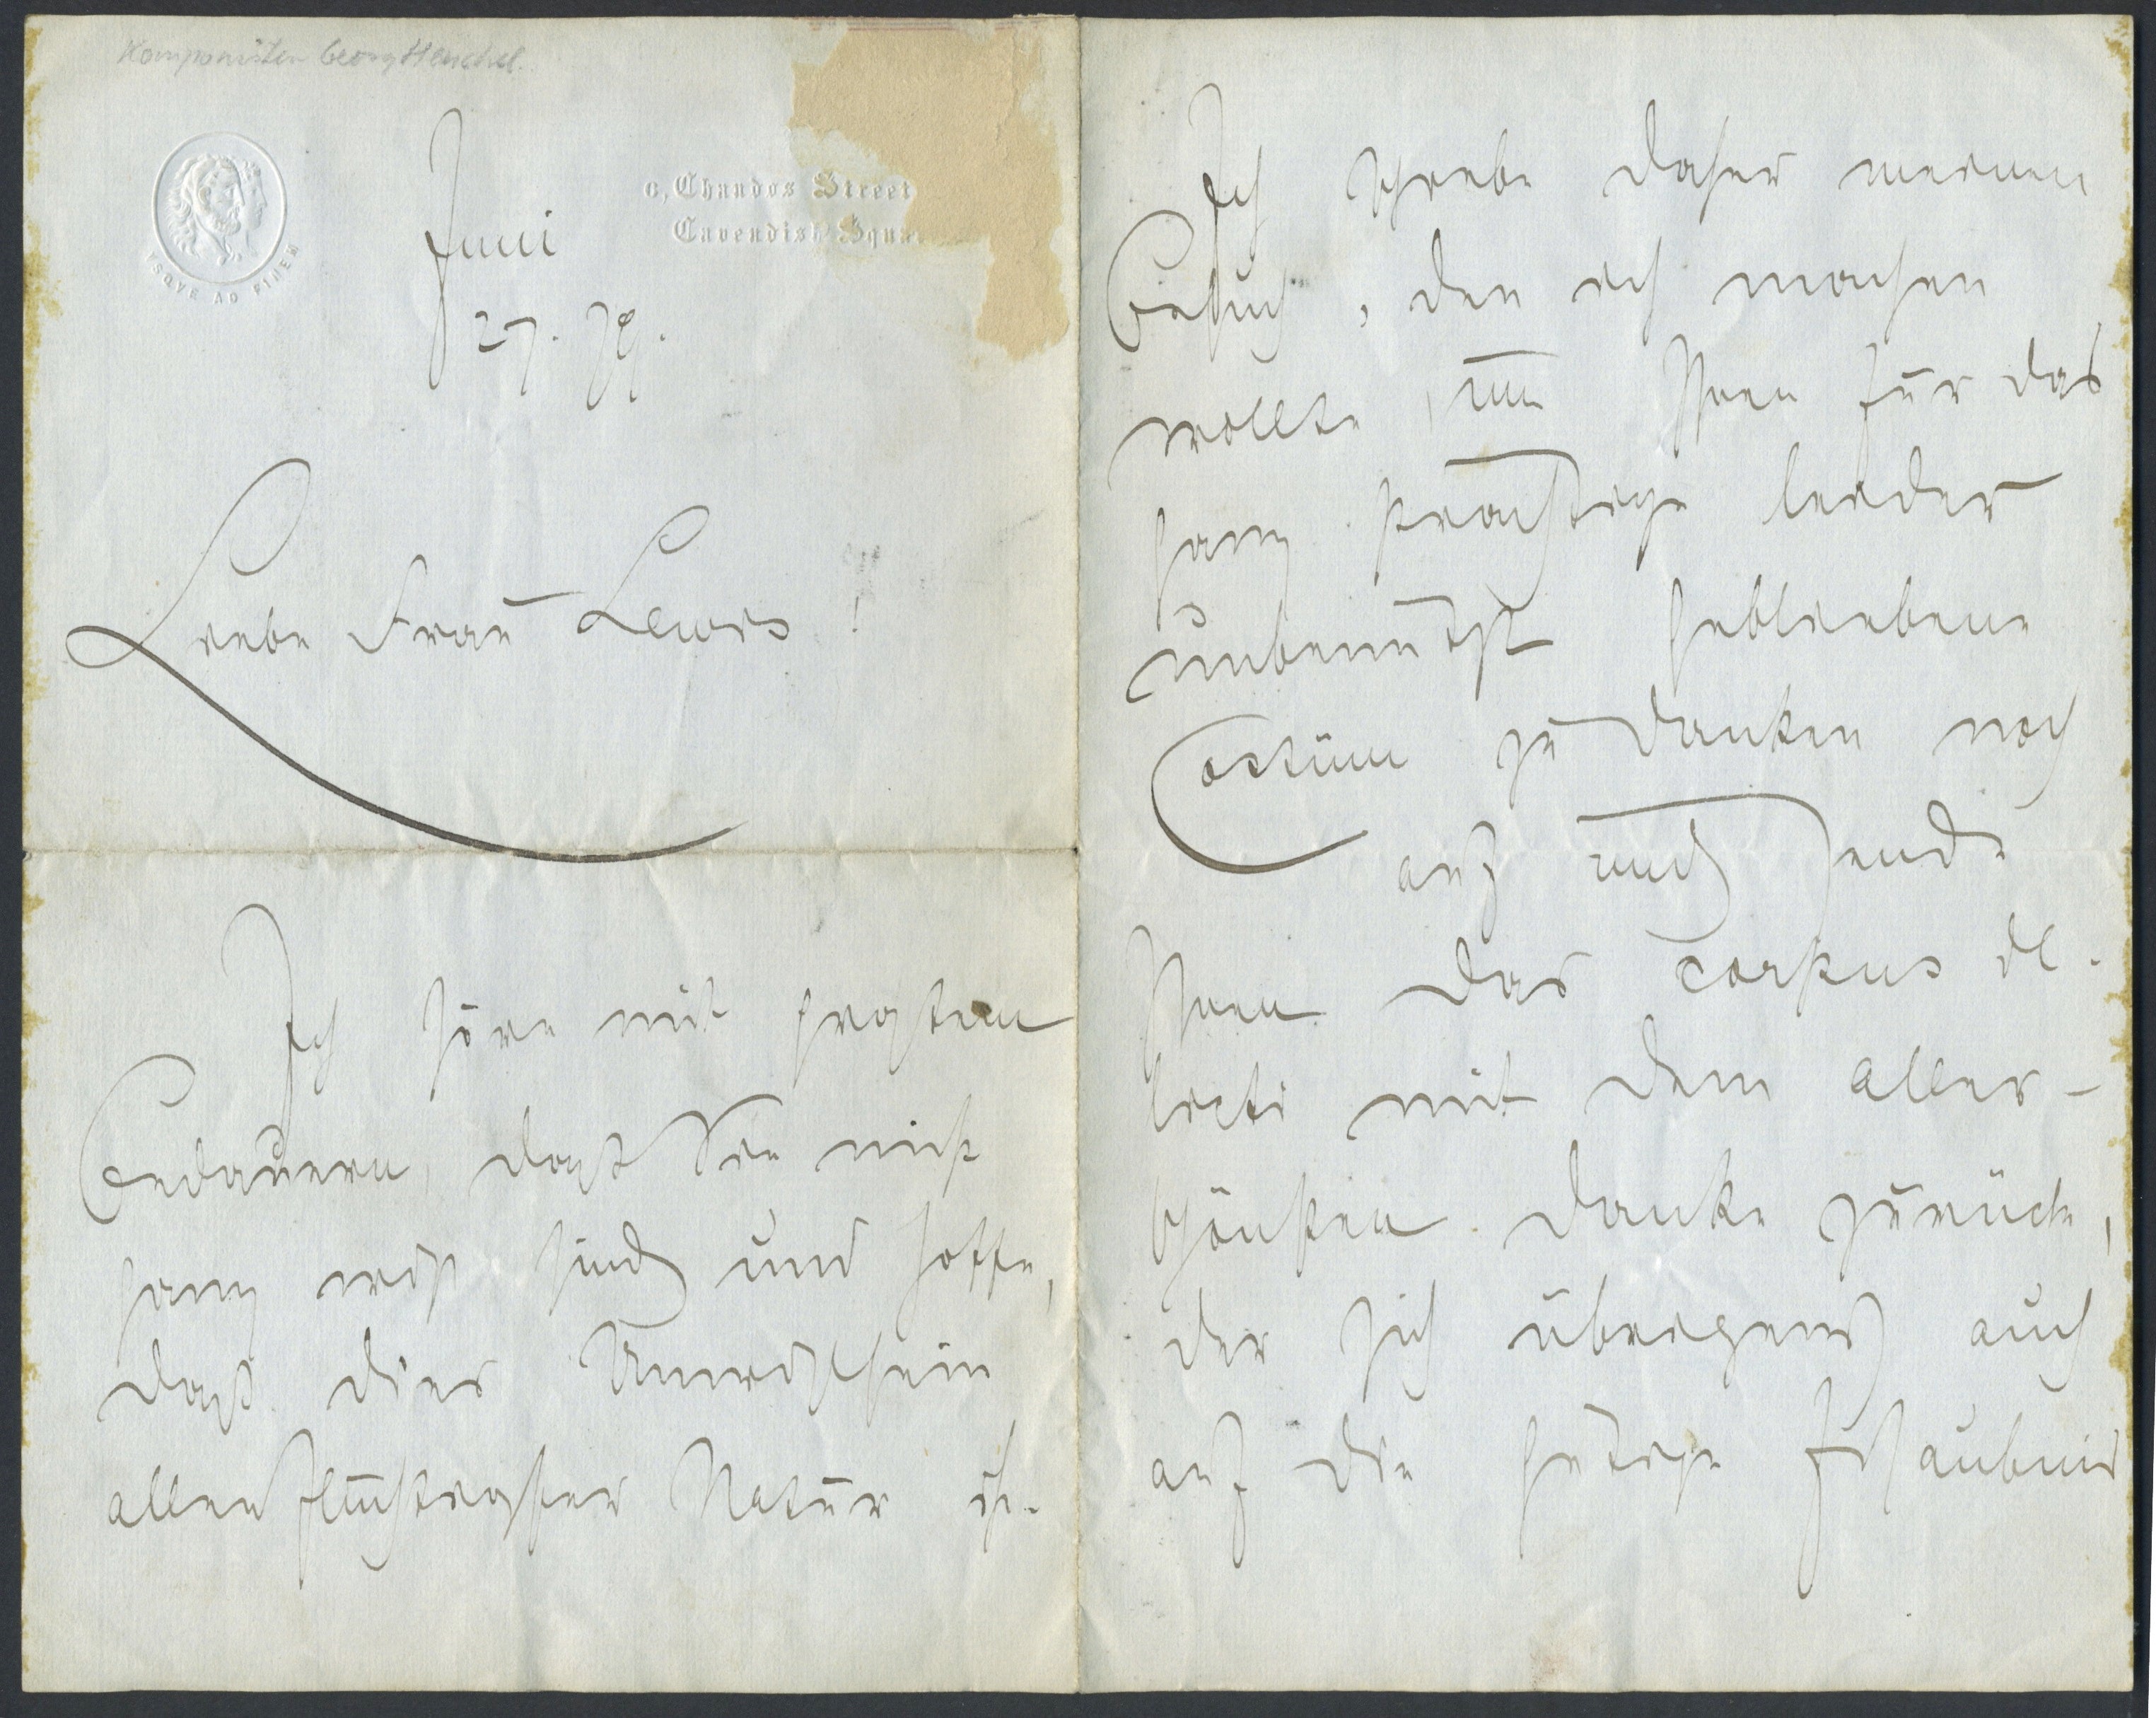 Komponisten Georg Henschel.
VSQVE AD FINEM
6, Chandos Street
Cavendish
Juni
27. 79.
Liebe Frau Lewis!
Ich höre mit größtem
Bedauern, daß Sie nicht
ganz wohl sind und hoffe,
daß dies Unwohlsein
allerflüchtigster Natur ist.
Ich schiebe daher meinen
Besuch, den ich machen
wollte, um Ihnen für das
ganz prächtige leider
unbenützt gebliebene
Costüm zu danken noch
auf und sende
Ihnen das corpus de-
licti mit dem aller-
schönsten Danke zurück,
der sich übrigens auch
auf die gütige Erlaubnis